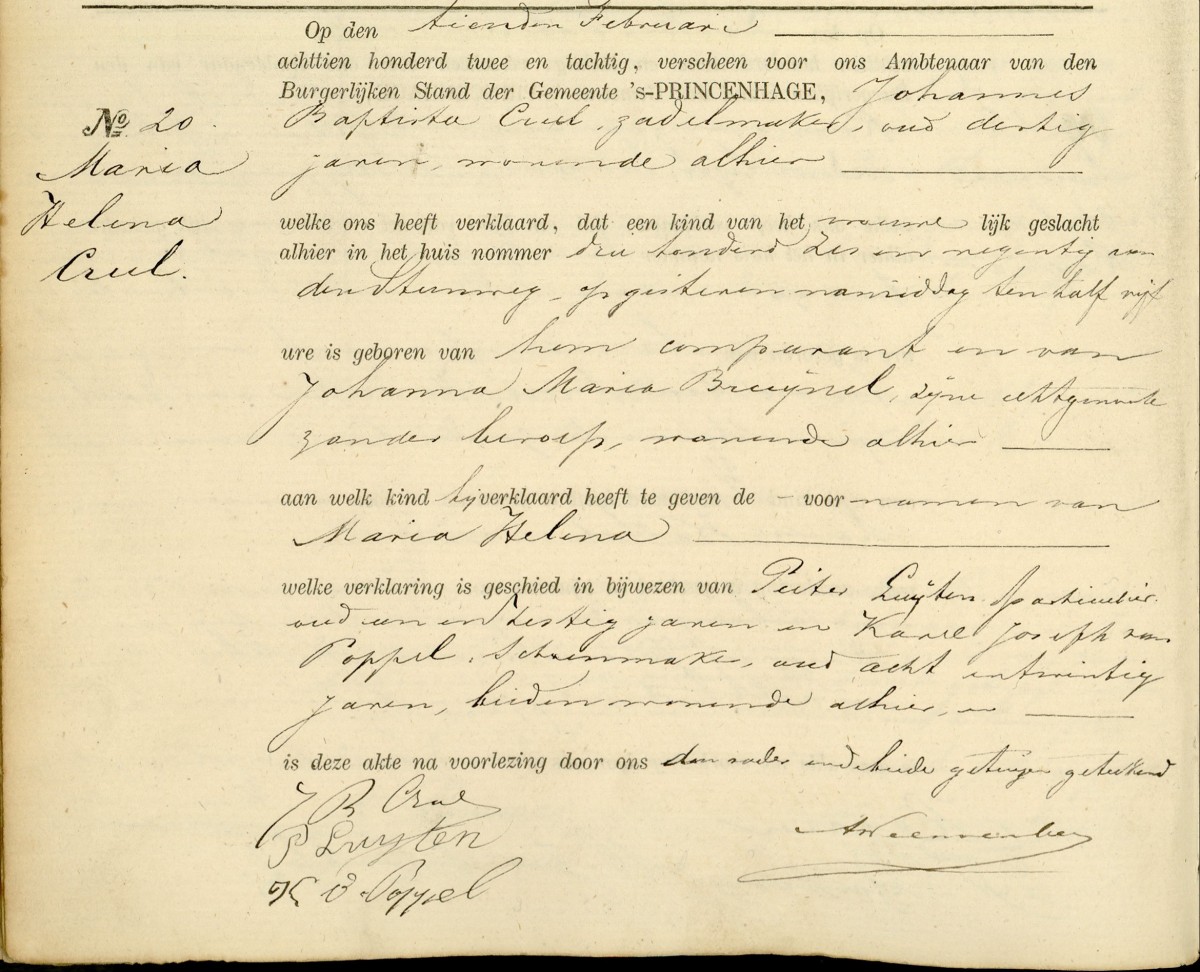 Op den tienden Februari
achttien honderd twee en tachtig, verscheen voor ons Ambtenaar van den
Burgerlijken Stand der Gemeente 's-PRINCENHAGE, Johannes
No 20.
Baptista Crul, zadelmaker, oud dertig
Maria
jaren, wonende alhier
Helena
welke ons heeft verklaard, dat een kind van het vrouwelijk geslacht
Crul.
alhier in het huis nommer drie honderd zes en negentig aan
den Steenweg, op gisteren namiddag ten half vijf
ure is geboren van hem comparant en van
Johanna Maria Bruijnel, zijne echtgenoote
zonder beroep, wonende alhier
aan welk kind hij verklaard heeft te geven de - voornamen van
Maria Helena
welke verklaring is geschied in bijwezen van Peiter Luijten particulier
oud een en zestig jaren en Karel Joseph van
Poppel, schoenmaker, oud acht en twintig
jaren, beiden wonende alhier, en
is deze akte na voorlezing door ons den vader en de beide getuigen geteekend
J B Crul
P Luyten
K V Poppel